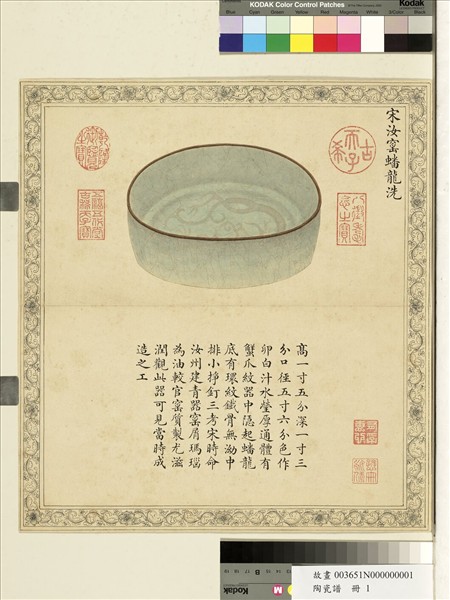 KODAK Color Control Patches
Kodak
Blue
Cyan
Green
Yellow
Red
Magenta
White
3/Color
Black
宋汝窑蟠龍洗
古
希
天
子
八徵耄念之寶
乾隆御覽之寶
五福五代堂古稀天子寶
高一寸五分深一寸三
分口徑五寸六分色作
卵白汁水瑩厚通體有
蟹爪紋器中隱起蟠龍
底有環紋鐵骨無泑中
排小掙釘三考宋時命
汝州建青器窑屑瑪瑙
為油較官窑質製尤滋
潤觀此器可見當時成
造之工
故畫 003651N000000001
陶瓷譜 冊 1